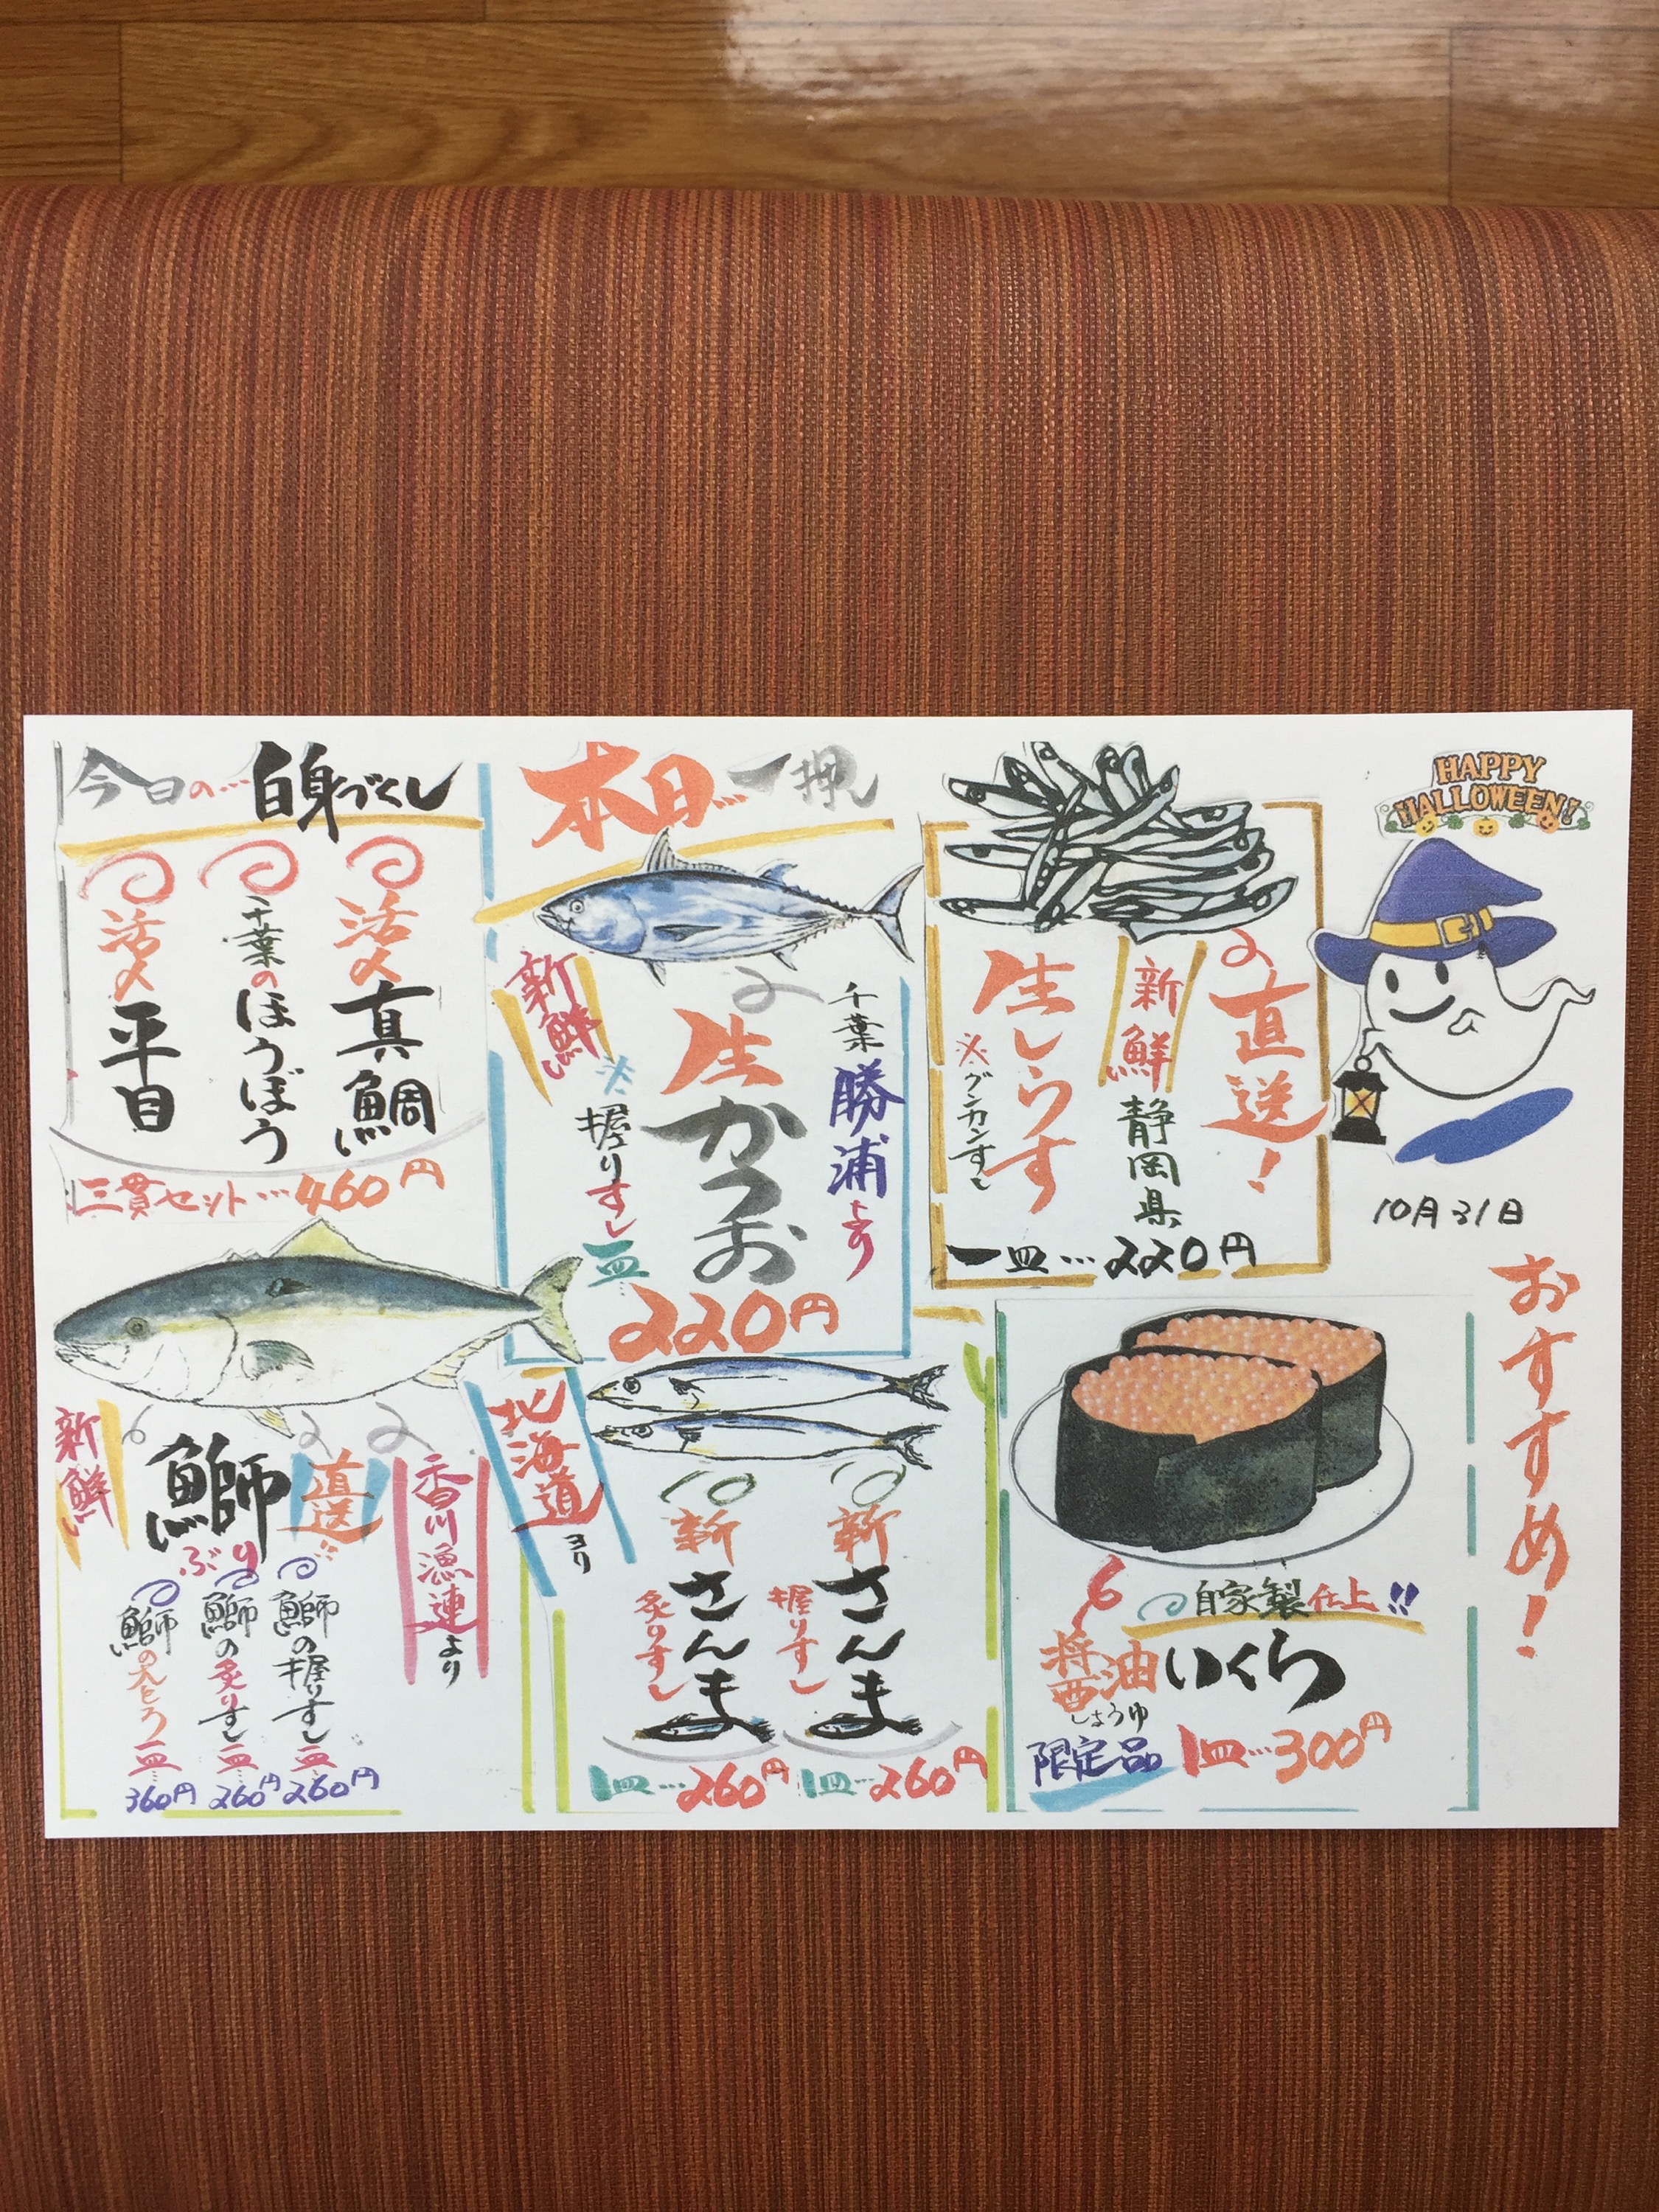 HAPPY
HALLOWEEN!
10月31日
おすすめ!
直送!
新鮮
静岡県
生しらす
※グンカンすし
一皿…220円
自家製仕上!!
醤油いくら
しょうゆ
限定品
1皿…300円
本日…
千葉勝浦より
生かつお
新鮮
※握りすし一皿
220円
北海道ヨリ
新さんま
握りすし
1皿…260円
新さんま
炙りすし
1皿…260円
今日の…白身づくし
活〆真鯛
千葉のほうぼう
活〆平目
三貫セット…460円
香川漁連より
直送
鰤
ぶり
新鮮
鰤の握りすし
一皿
260円
鰤の炙りすし
一皿
260円
鰤の大とろ
一皿
360円